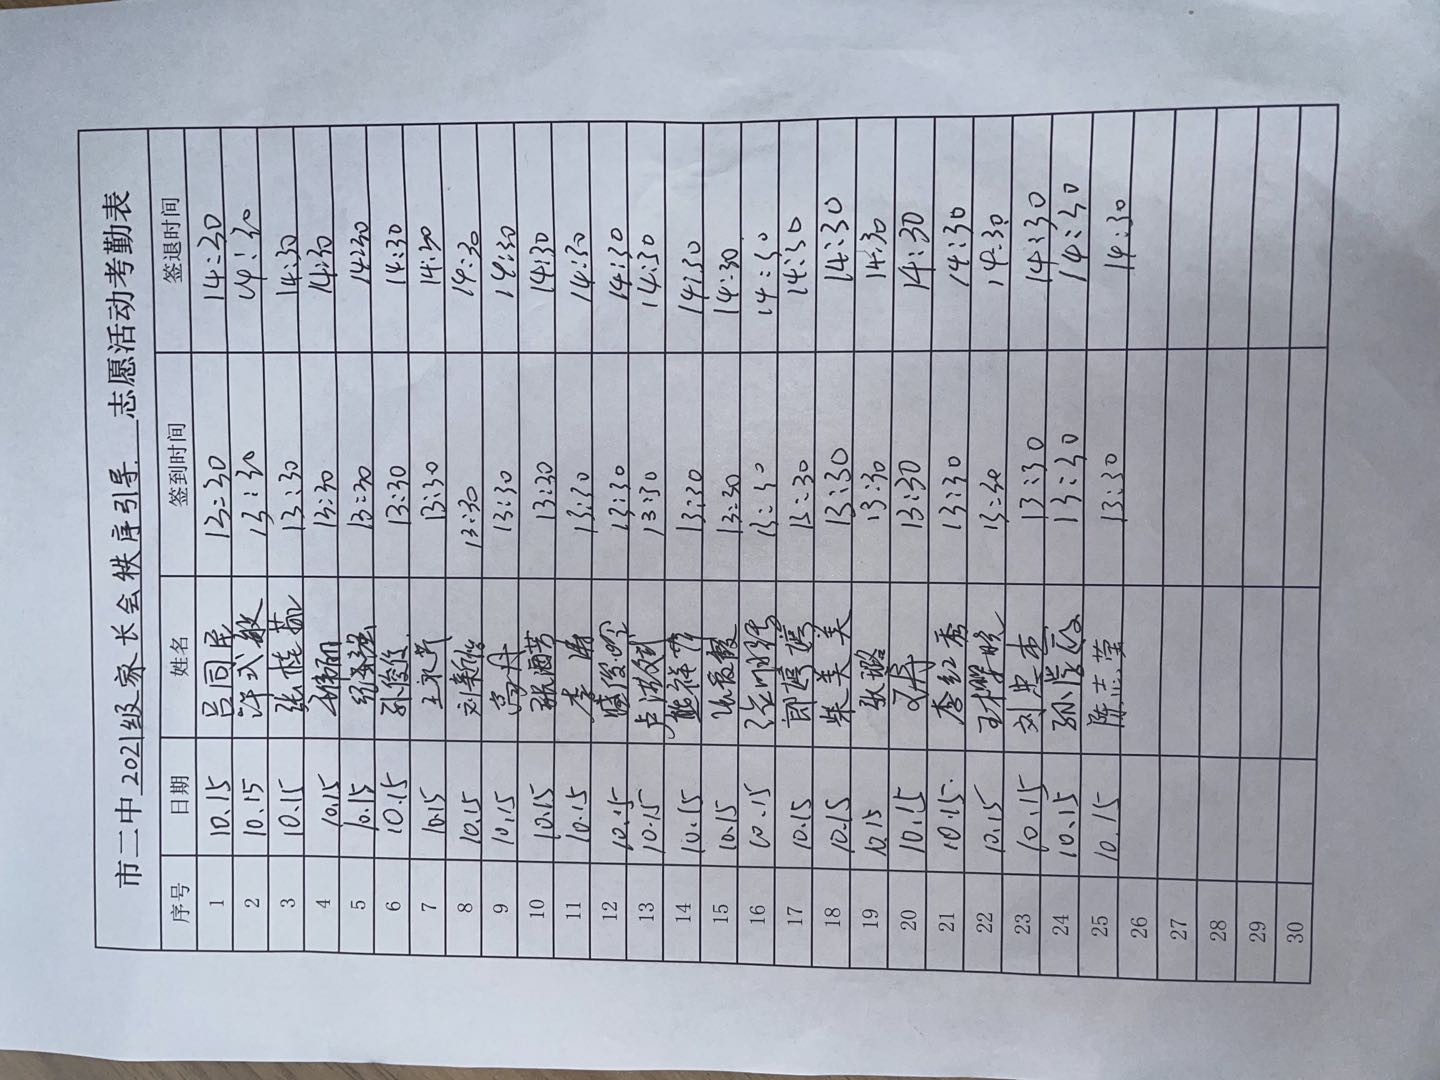 市二中 2021级家长会秩序引导 志愿活动考勤表
序号 日期 姓名 签到时间 签退时间
1 10.15 吕同 13:30 14:30
2 10.15 许式敏 13:30 14:30
3 10.15 张桂 13:30 14:30
4 10.15 13:30 14:30
5 10.15 13:30 14:30
6 10.15 孙俊俊 13:30 14:30
7 10.15 王 13:30 14:30
8 10.15 刘 13:30 14:30
9 10.15 高丹 13:30 14:30
10 10.15 张 13:30 14:30
11 10.15 李 13:30 14:30
12 10.15 13:30 14:30
13 10.15 卢 13:30 14:30
14 10.15 熊祥 13:30 14:30
15 10.15 张爱霞 13:30 14:30
16 10.15 13:30 14:30
17 10.15 郎婷婷 13:30 14:30
18 10.15 柴美美 13:30 14:30
19 10.15 张璐 13:30 14:30
20 10.15 13:30 14:30
21 10.15. 李红秀 13:30 14:30
22 10.15 13:30 14:30
23 10.15 刘忠 13:30 14:30
24 10.15 孙 13:30 14:30
25 10.15 陈志荣 13:30 14:30
26
27
28
29
30